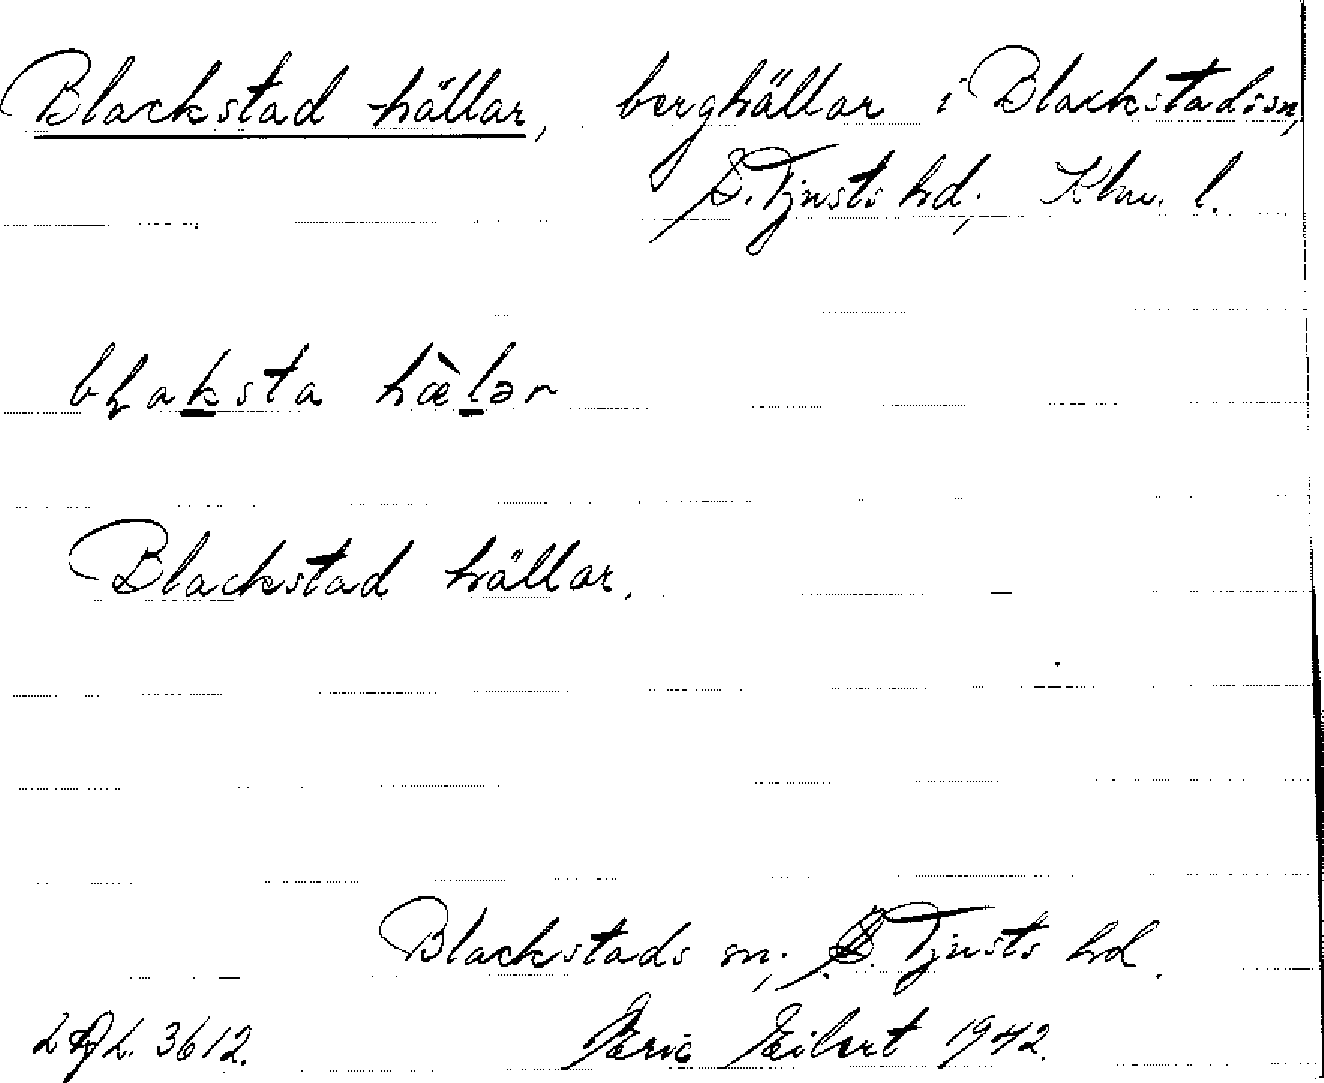 Blackstad hällar, berghällar i Blackstads sn,
S. Tjusts hd, Klm. l.
bɫaksta hæ̀lər
Blackstad hällar.
Blackstads sn, S. Tjusts hd.
3612. Eric Eilert 1942.